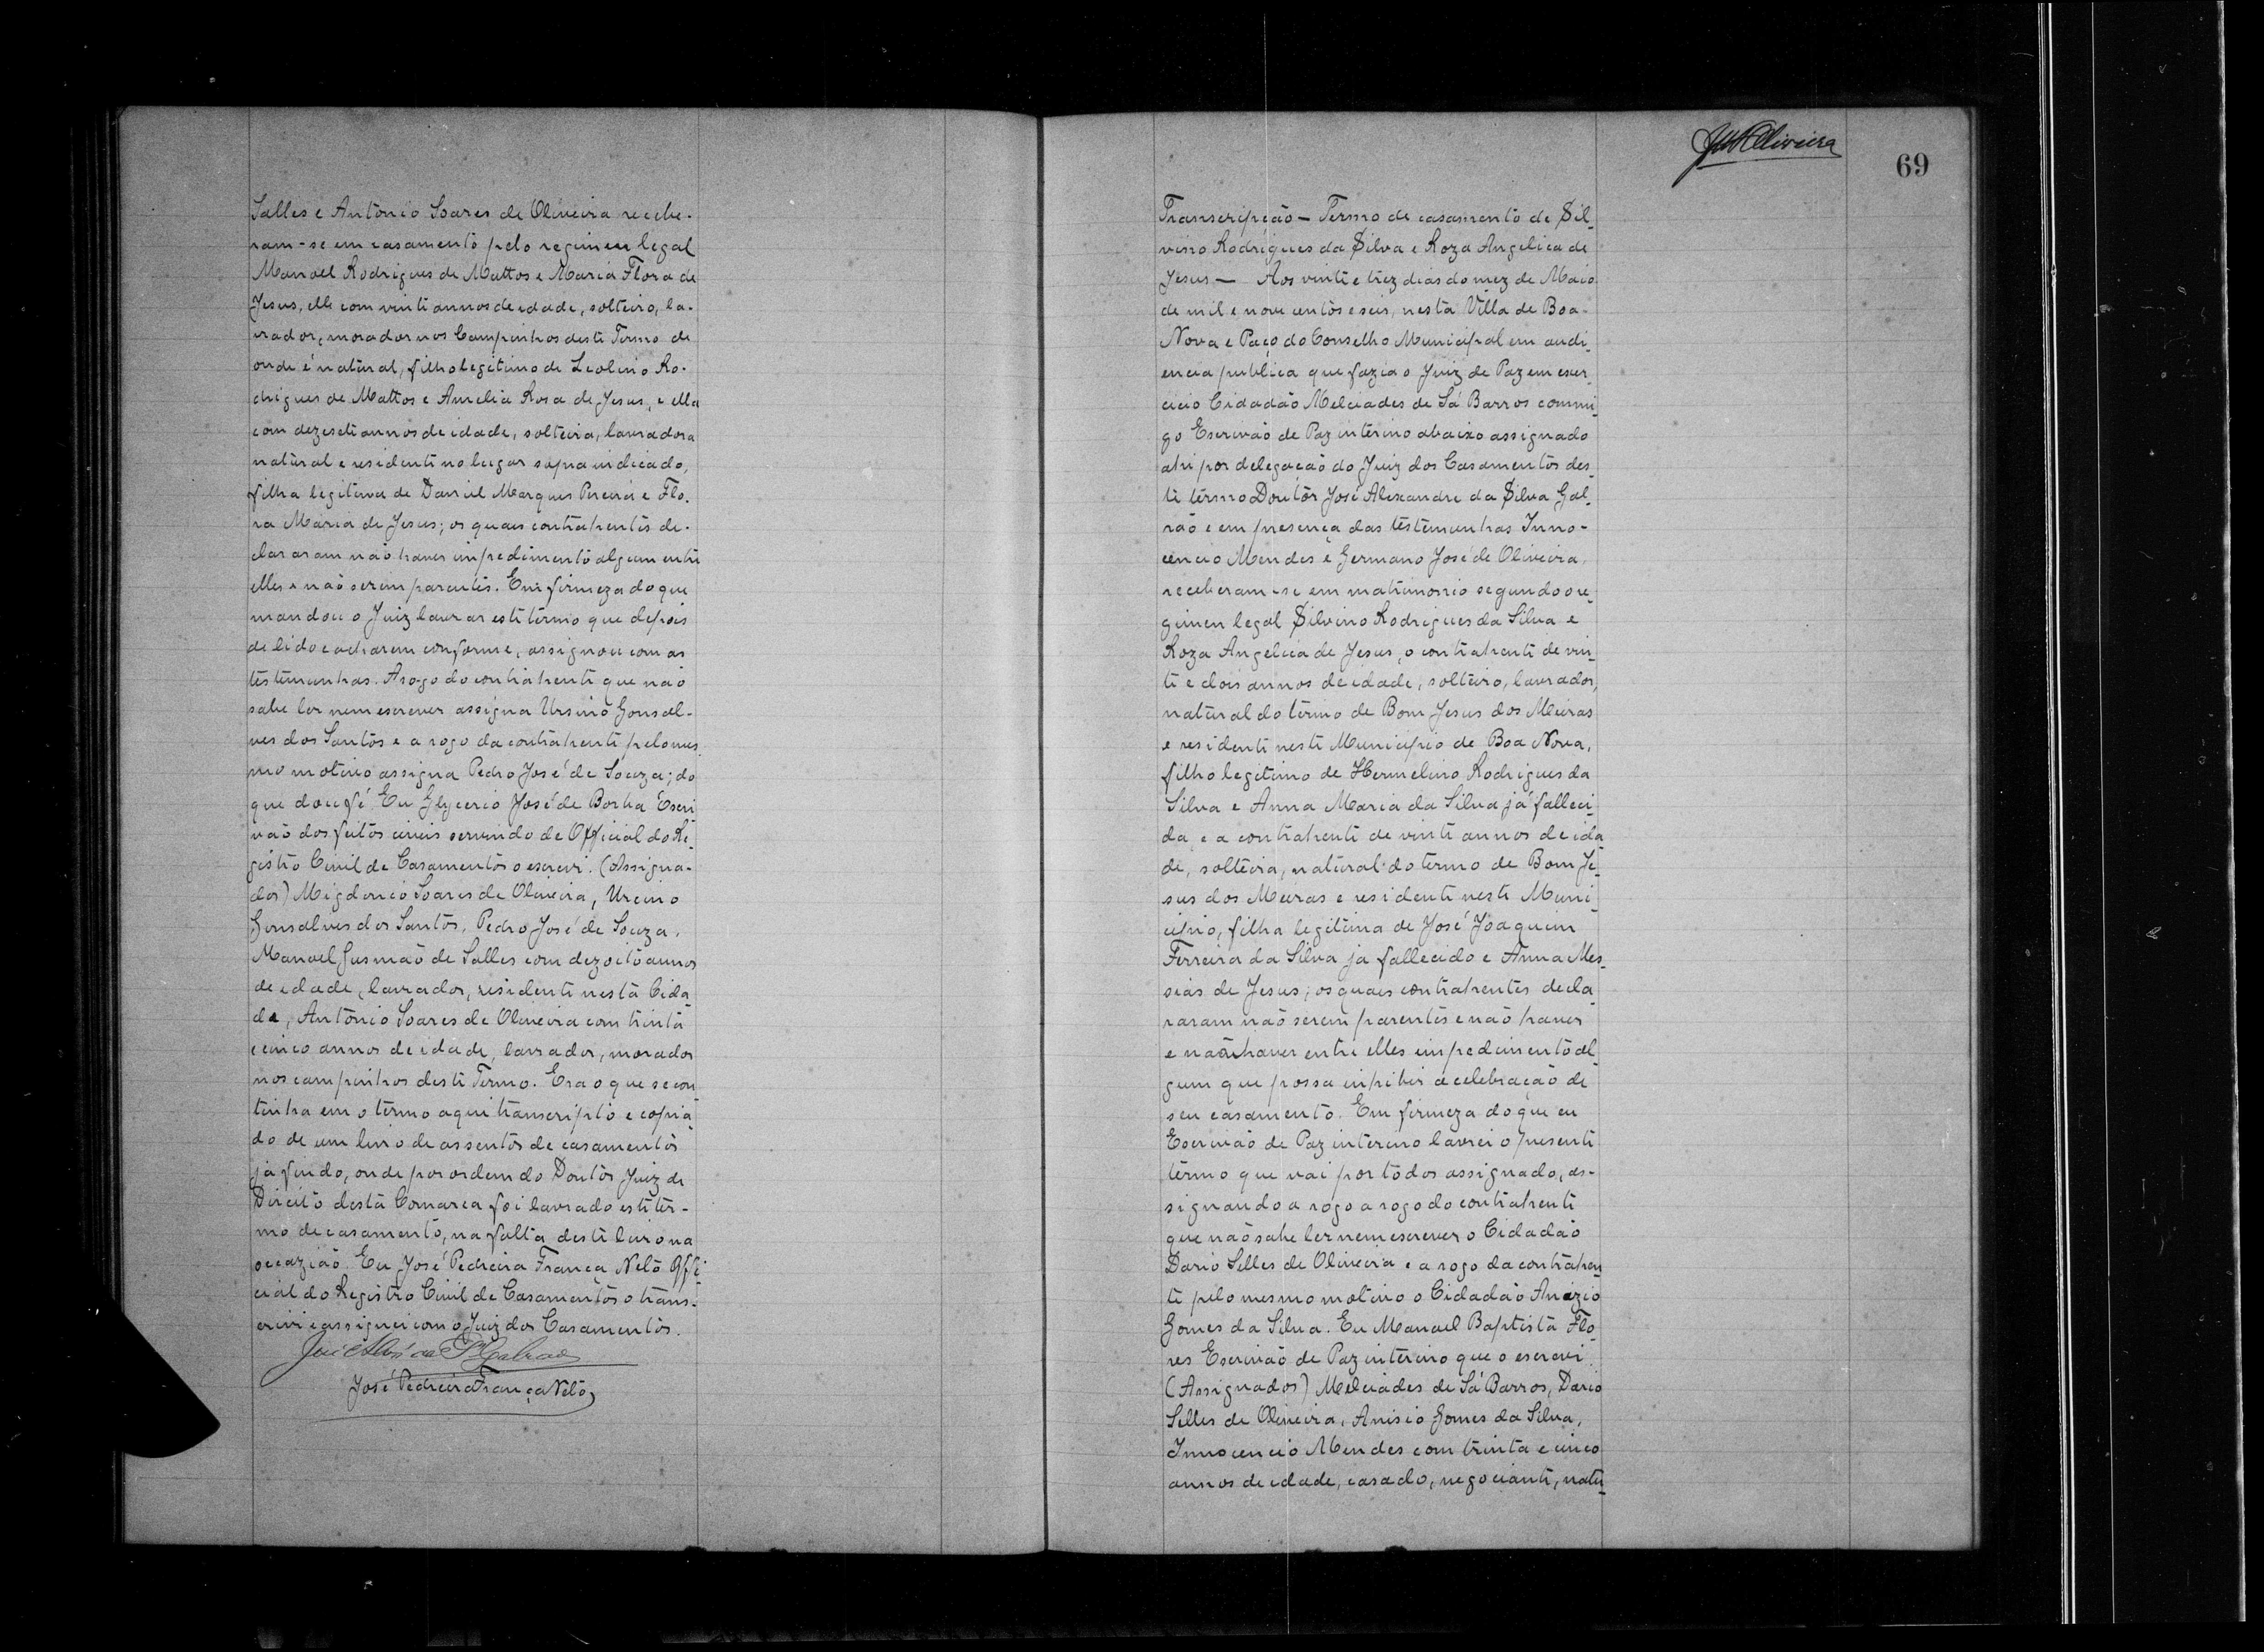 Salles e Antonio Soares de Oliveira recebe-
ram-se em casamento pelo regimen legal
Manoel Rodrigues de Mattos e Maria Flora de
Jesus, elle com vinte annos de edade, solteiro, la-
vrador, morador nos Campinhos deste Termo de
onde é natural, filho legitimo de Leolino Ro-
drigues de Mattos e Amelia Rosa de Jesus, e ella
com dezesete annos de idade, solteira, lavradora
natural e residente no lugar supra indicado,
filha legitima de Daniel Marques Pereira e Flo-
ra Maria de Jesus; os quaes contrahentes de-
clararam não haver impedimento algum entre
elles e não serem parentes. Em firmeza do que
mandou o Juiz lavrar este termo que depois
de lido e acharem conforme, assignou com as
testemunhas. A rogo do contrahente que não
sabe ler nem escrever assigna Ursino Gonsal-
ves dos Santos e a rogo da contrahente pelo mes
mo motivo assigna Pedro José de Souza; do
que dou fé Eu Glycerio José de Borba Escri-
vão dos feitos civeis servindo de Official do Re-
gistro Civil de Casamentos o escrevi. (Assigna-
dos) Migdonio Soares de Oliveira, Urcino
Gonsalves dos Santos, Pedro José de Souza,
Manoel Gusmão de Salles com dezoito annos
de edade, lavrador, residente nesta Cida
de, Antonio Soares de Oliveira com trinta
e cinco annos de edade, lavrador, morador
nos campinhos deste Termo. Era o que se con
tinha em o termo aqui transcripto e copia
do de um livro de assentos de casamentos
já findo, onde por ordem do Doutor Juiz de
Direito desta Comarca foi lavrado este ter-
mo de casamento, na falta deste livro na
occazião. Eu José Pedreira França Netto Offi
cial do Registro Civil de Casamentos o trans-
crivi e assignei com o Juiz dos Casamentos.
José Alex da S Galrão
José Pedreira França Netto
69
Transcripção — Termo de casamento de Sil-
vino Rodrigues da Silva e Roza Angelica de
Jesus — Aos vinte e trez dias do mez de Maio
de mil e nove centos e seis, nesta Villa de Boa-
Nova e Paço do Conselho Municipal em audi-
encia publica que fazia o Juiz de Paz em exer-
cicio Cidadão Melciades de Sá Barros commi-
go Escrivão de Paz interino abaixo assignado
ahi por delegação do Juiz dos Casamentos des-
te termo Doutor José Alexandre da Silva Gal-
rão e em presença das testemunhas Inno-
cencio Mendes e Germano José de Oliveira,
receberam-se em matrimonio segundo o re-
gimen legal Silvino Rodrigues da Silva e
Roza Angelica de Jesus, o contrahente de vin-
te e dois annos de edade, solteiro, lavrador,
natural do termo de Bom Jesus dos Meiras
e residente neste Municipio de Boa Nova,
filho legitimo de Hermelino Rodrigues da
Silva e Anna Maria da Silva já falleci-
da, e a contrahente de vinte annos de ida
de, solteira, natural do termo de Bom Je-
sus dos Meiras e residente neste Muni-
cipio, filha legitima de José Joaquim
Ferreira da Silva já fallecido e Anna Mes-
sias de Jesus; os quaes contrahentes decla-
raram não serem parentes e não haver
e não haver entre elles impedimento al
gum que possa inhibir a celebração de
seu casamento. Em firmeza do que eu
Escrivão de Paz interino lavrei o presente
termo que vai por todos assignado, as-
signando a rogo a rogo do contrahente
que não sabe ler nem escrever o Cidadão
Dario Selles de Oliveira e a rogo da contrahen
te pelo mesmo motivo o Cidadão Anizio
Gomes da Silva. Eu Manoel Baptista Flo-
res Escrivão de Paz interino que o escrevi.
(Assignados) Melciades de Sá Barros, Dario
Selles de Oliveira, Anisio Gomes da Silva,
Innocencio Mendes com trinta e cinco
annos de edade, casado, negociante, natu-